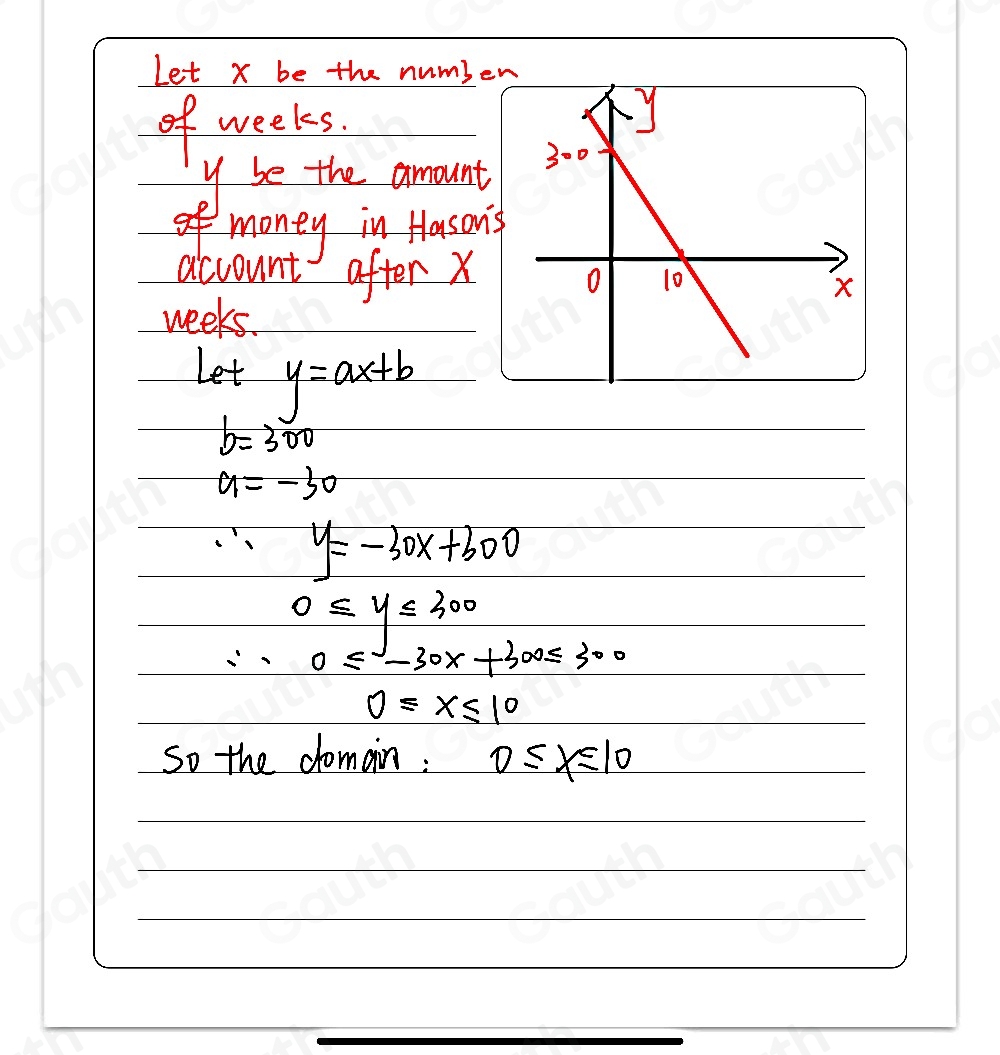 Let x be the number
of weeks.
y be the amount
of money in Hason's
account after X
weeks.
y
300
0
10
x
Let y=ax+b
b=300
a=-30
∴ y=-30x+300
0 ≤ y ≤ 300
∴ 0 ≤ -30x+300 ≤ 300
0 ≤ x ≤ 10
So the domain: 0 ≤ x ≤ 10
Gauth